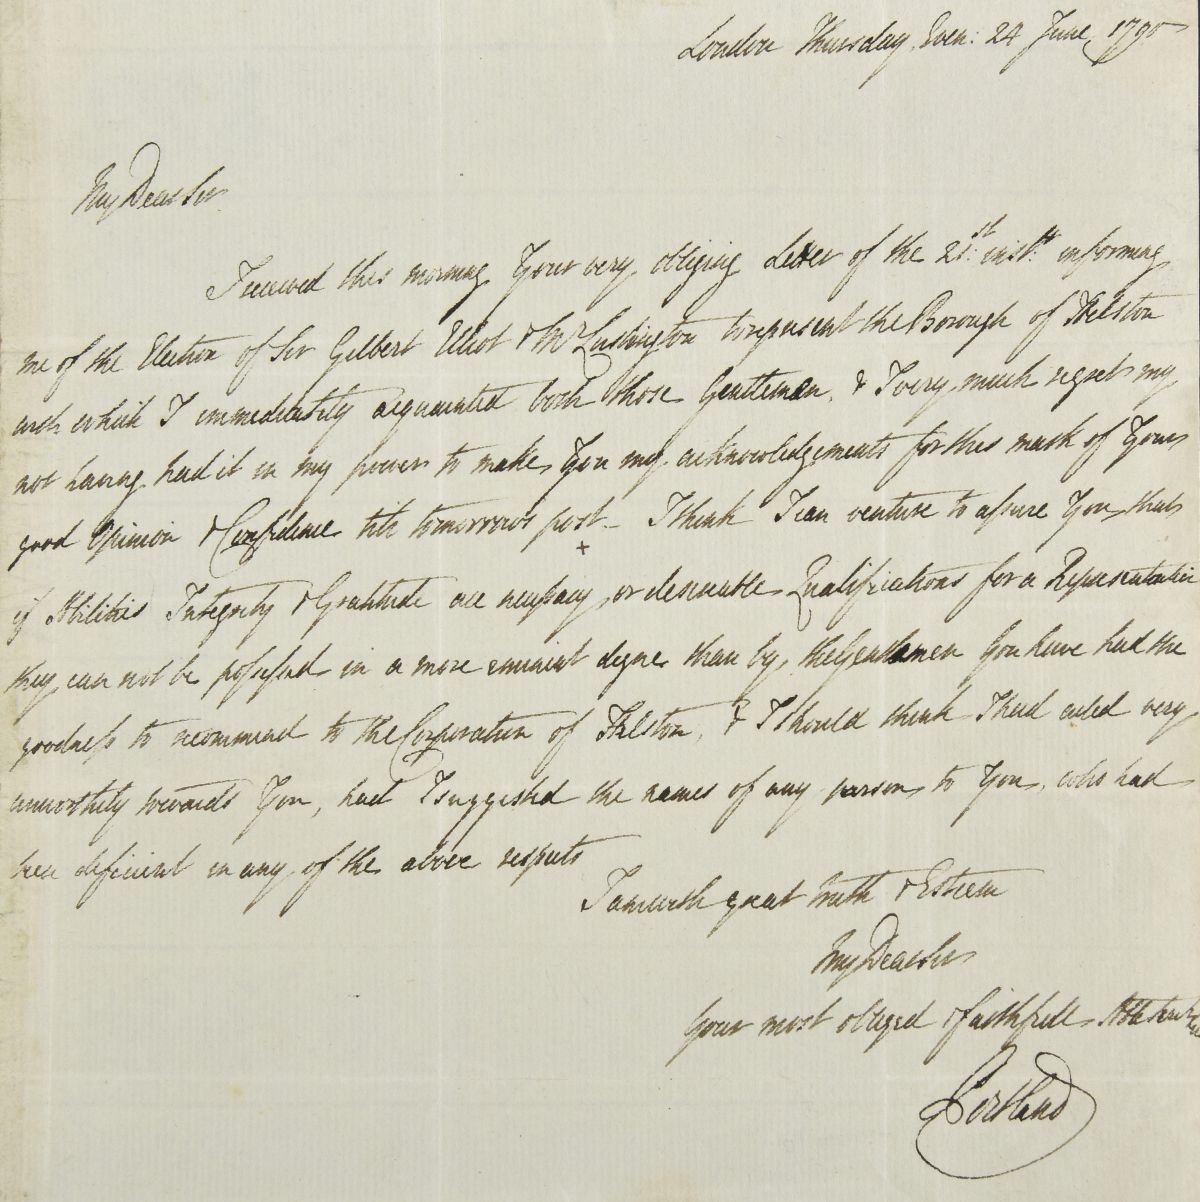 London Thursday Even: 24 June 1790
My Dear Sir
I received this morning Your very obliging Letter of the 21st inst. informing
me of the Election of Sir Gilbert Elliot & Mr Lushington to represent the Borough of Helston
with which I immediately acquainted both those Gentlemen, & I very much regret my
not having had it in my power to make You my acknowledgements for this mark of Your
good Opinion & Confidence till tomorrows post – I think I can venture to assure You that
+
if Abilities Integrity & Gratitude are necessary or desireable Qualifications for a Representative
they can not be possessed in a more eminent degree than by the Gentlemen You have had the
goodness to recommend to the Corporation of Helston, & I should think I had acted very
unworthily towards You, had I suggested the names of any person to You, who had
been deficient in any of the above respects
I am with great truth & Esteem
My Dear Sir
Your most obliged & faithfull
Portland